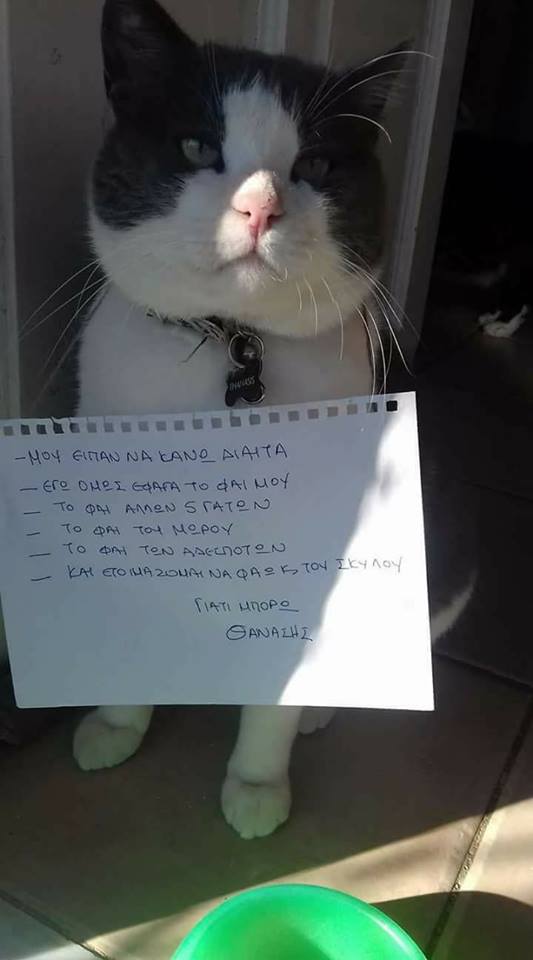 THANASIS
- ΜΟΥ ΕΙΠΑΝ ΝΑ ΚΑΝΩ ΔΙΑΙΤΑ
- ΕΓΩ ΟΜΩΣ ΕΦΑΓΑ ΤΟ ΦΑΙ ΜΟΥ
- ΤΟ ΦΑΙ ΑΛΛΩΝ 5 ΓΑΤΩΝ
- ΤΟ ΦΑΙ ΤΟΥ ΜΩΡΟΥ
- ΤΟ ΦΑΙ ΤΩΝ ΑΔΕΣΠΟΤΩΝ
- ΚΑΙ ΕΤΟΙΜΑΖΟΜΑΙ ΝΑ ΦΑΩ Κ ΤΟΥ ΣΚΥΛΟΥ
ΓΙΑΤΙ ΜΠΟΡΩ
ΘΑΝΑΣΗΣ